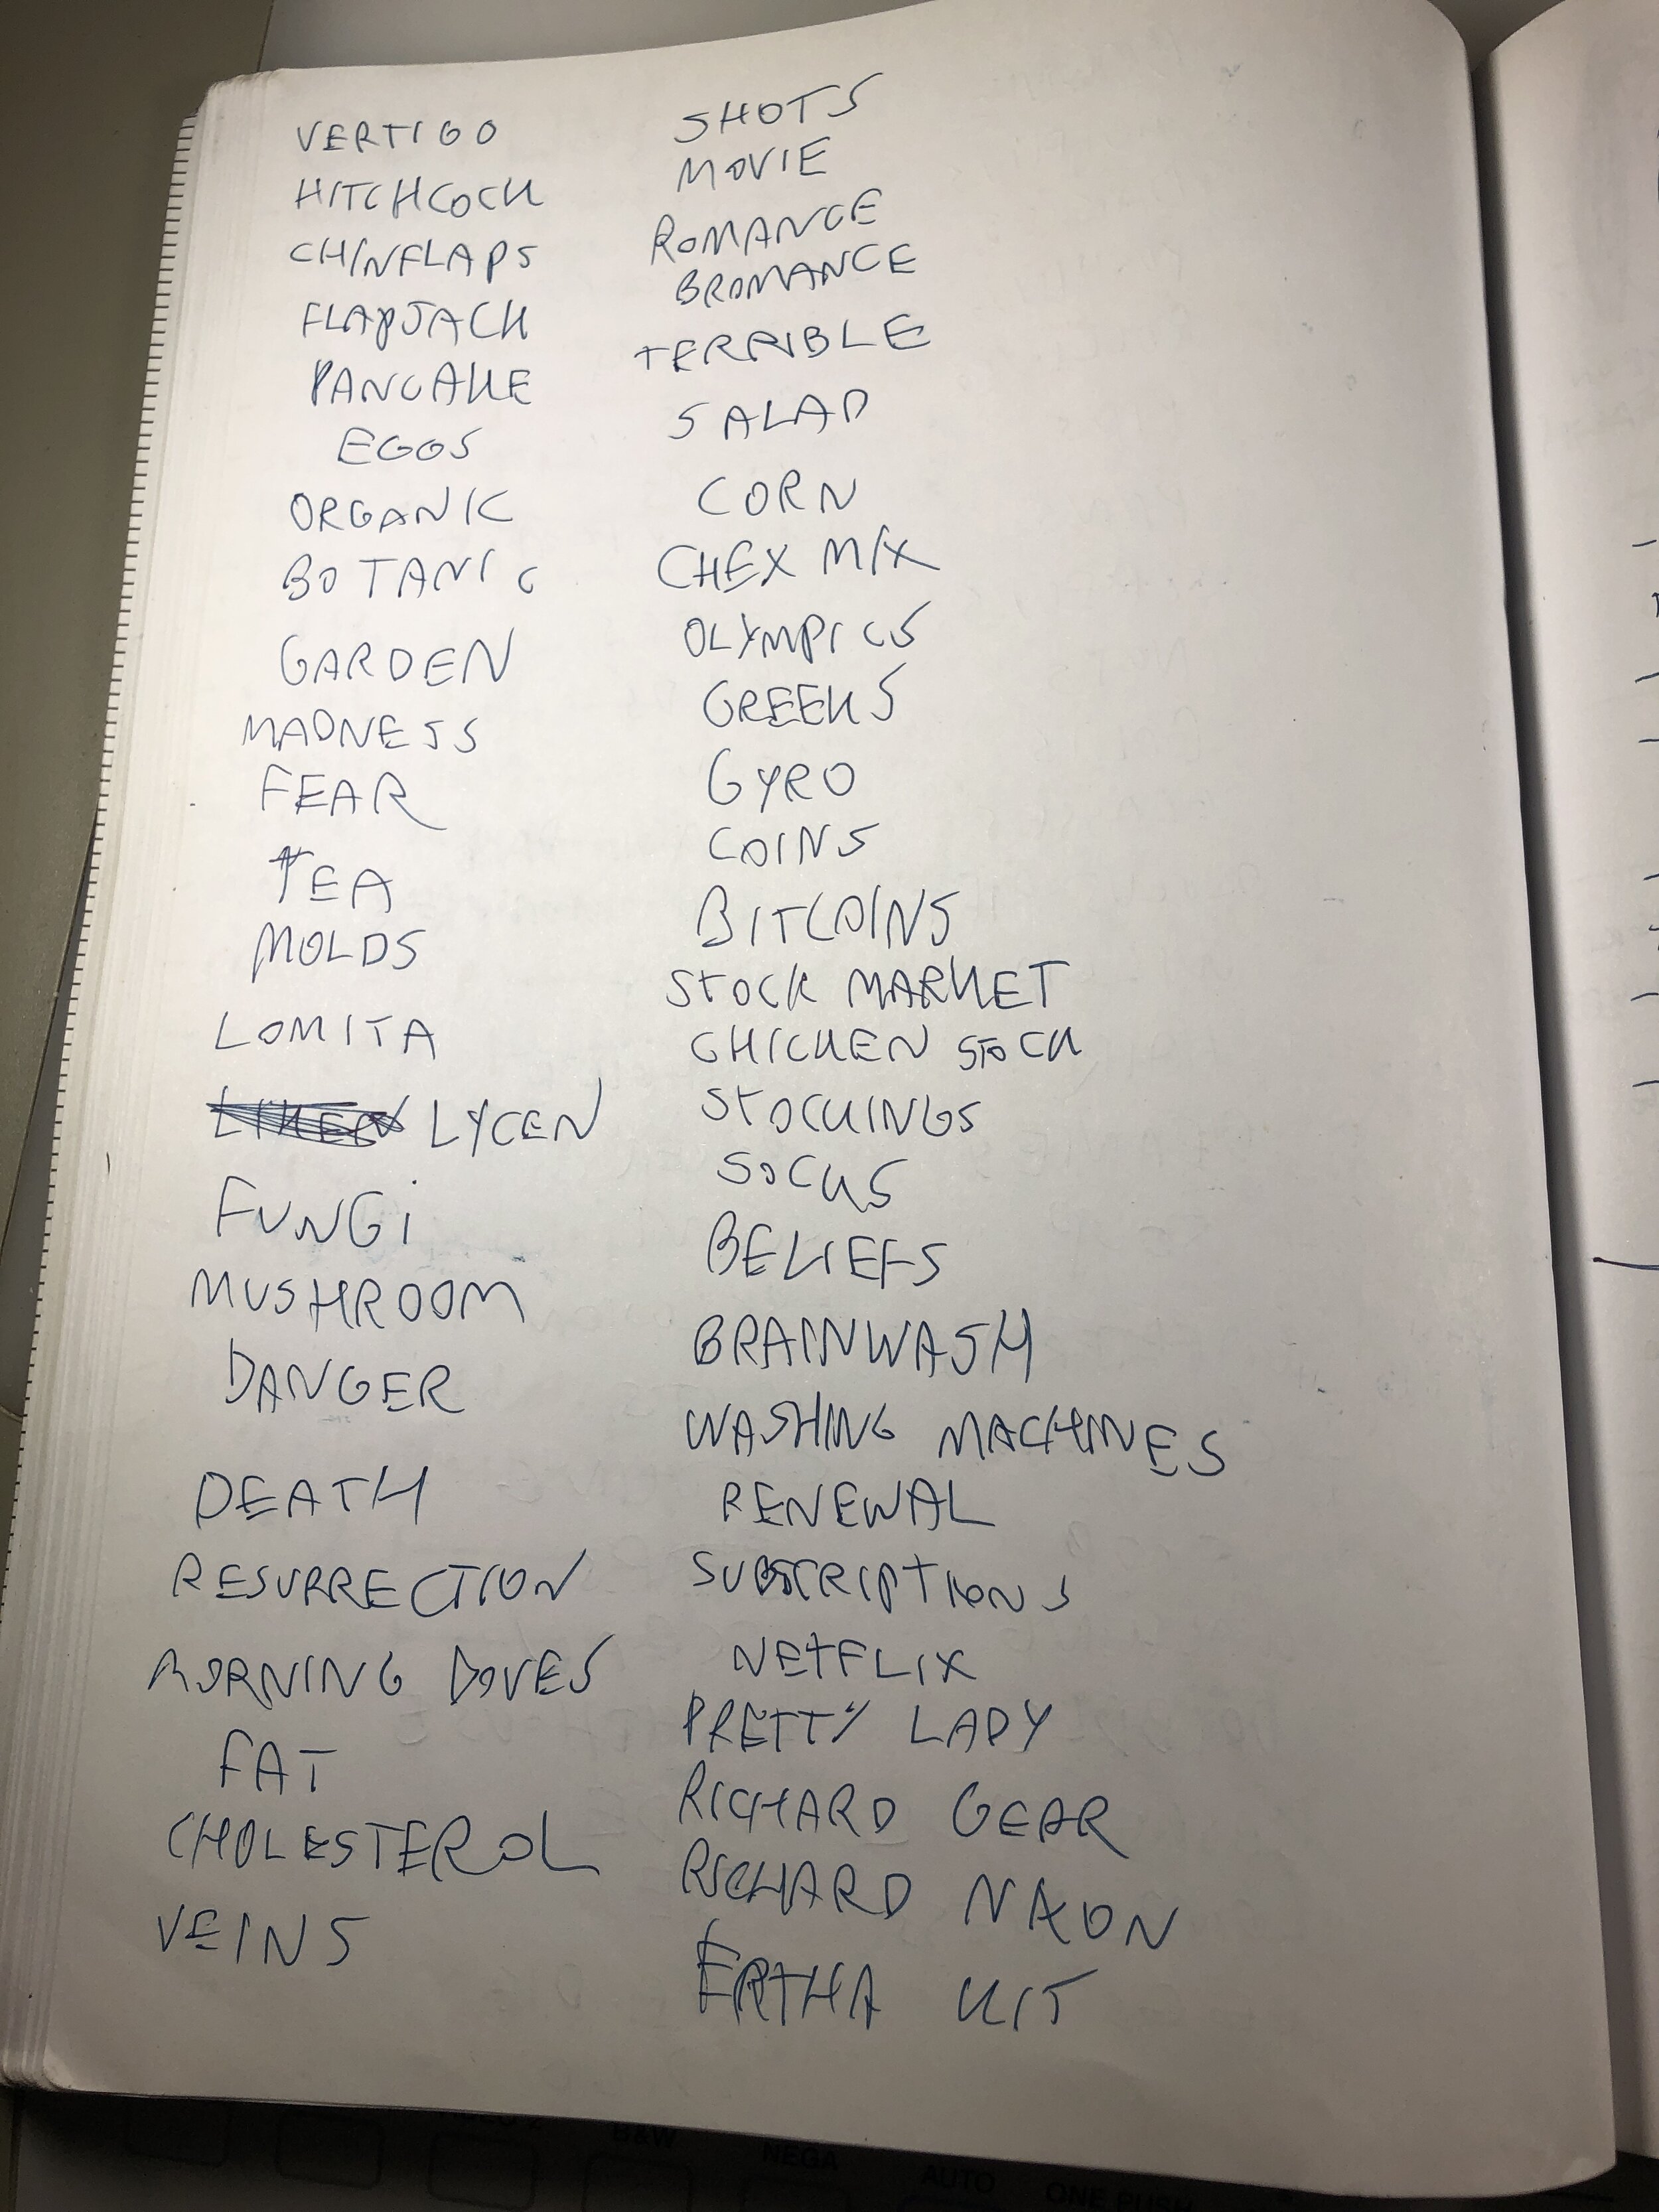 VERTIGO
HITCHCOCK
CHINFLAPS
FLAPJACK
PANCAKE
EGGS
ORGANIC
BOTANIC
GARDEN
MADNESS
FEAR
TEA
MOLDS
LOMITA
LYCEN
FUNGi
MUSHROOM
DANGER
DEATH
RESURRECTION
MORNING DOVES
FAT
CHOLESTEROL
VEINS
SHOTS
MOVIE
ROMANCE
BROMANCE
TERRIBLE
SALAD
CORN
CHEX MIX
OLYMPICS
GREEKS
GYRO
COINS
BITCOINS
STOCK MARKET
CHICKEN STOCK
STOCKINGS
SOCKS
BELIEFS
BRAINWASH
WASHING MACHINES
RENEWAL
SUBSCRIPTIONS
NETFLIX
PRETTY LADY
RICHARD GEAR
RICHARD NIXON
ERTHA KIT
B&W
NEGA
AUTO
ONE PUSH